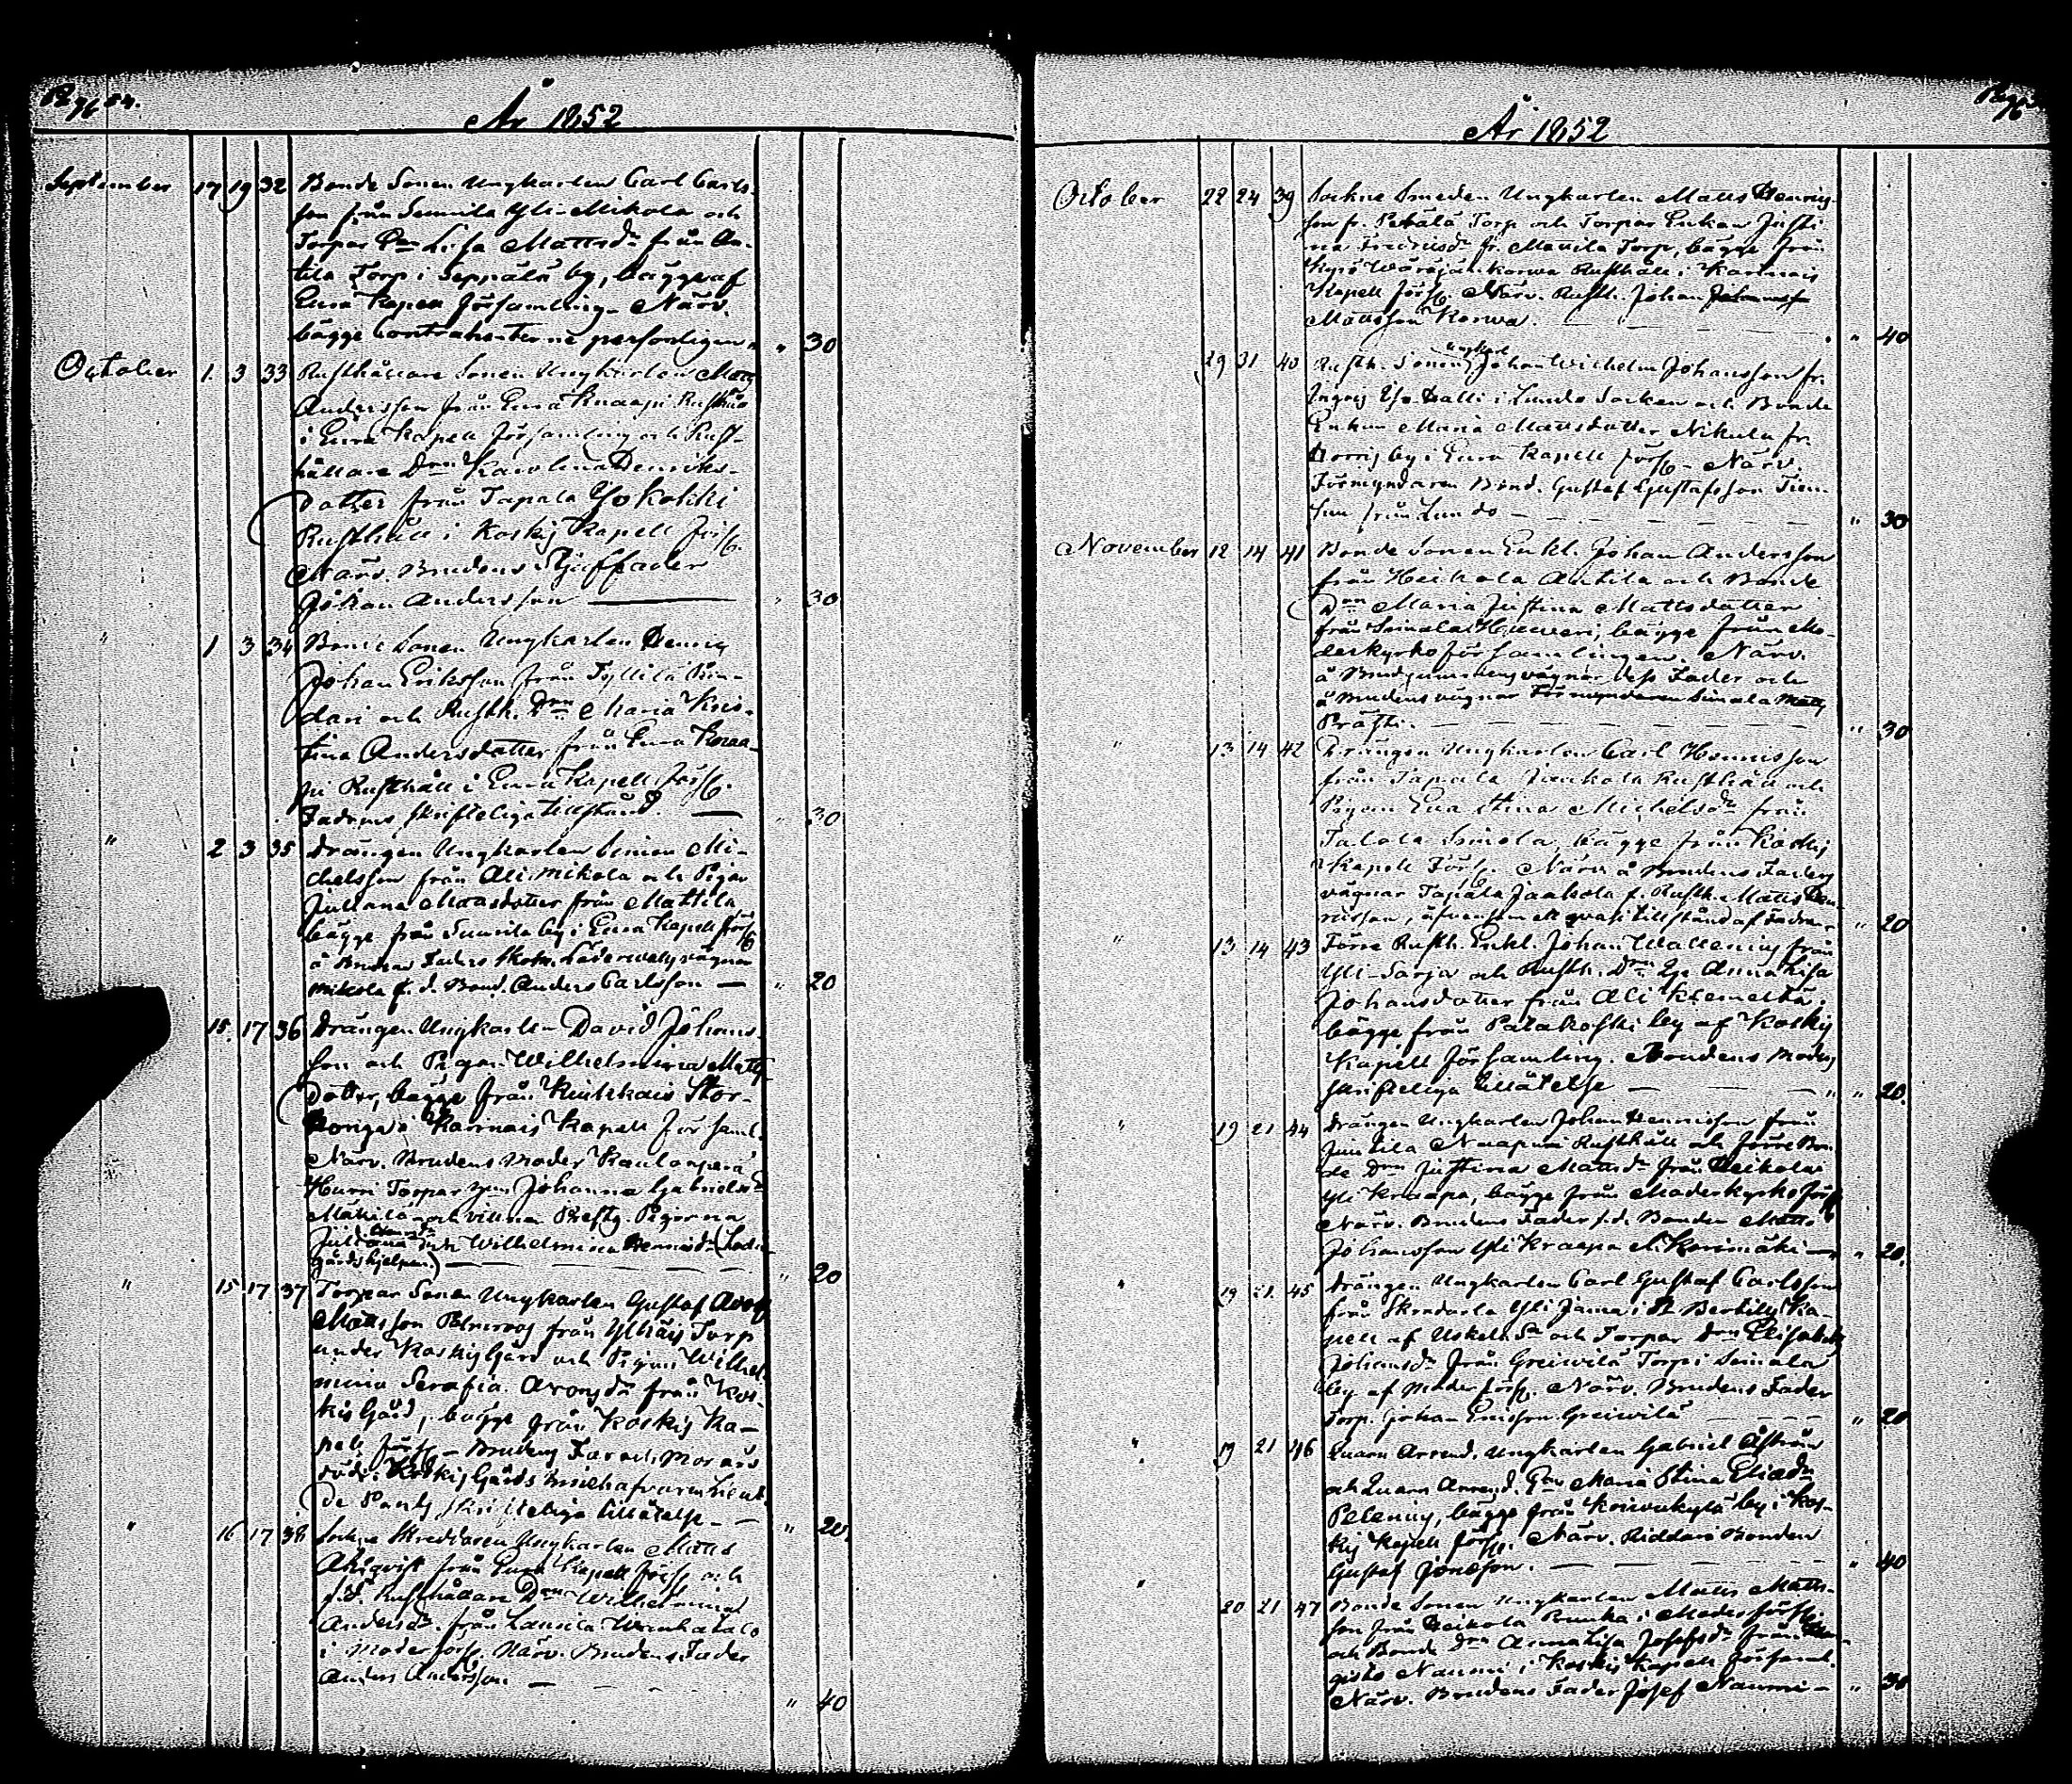 År 1852
September 17 19 32 Bonde Sonen Ungkarlen Carl Carls-
son från Sennila Yli-Mikola och
Torpar Lisa Mattsdr från An-
tila Torp i Seppälä by, bägge af
Eura Kapell församling - Närv.
bägge Contrahenterne personligen " 30
October 1. 3 33 Rusthållare Sonen Ungkarlen Matts
Andersson från Eura Knaapi Rusthåll
i Eura Kapell församling och Rust-
hållare Dren Karolina Henriks-
dotter från Tapala Yso Kokki
Rusthåll i Koskis Kapell förs.
Närv. Brudens Stjuffader
Johan Andersson — " 30
" 1 3 34 Bonde Sonen Ungkarlen Henric
Johan Eriksson från Tyllilä Rin-
dari och Rusth. Dren Maria Kris-
tina Andersdotter från Eura Knaa-
pi Rusthåll i Eura Kapell förs.
Fadrens skrifteliga tillstånd. — " 30
" 2 3 35 Drängen Ungkarlen Simon Mi-
chelsson från Ali Mikola och Pigan
Juliana Mattsdotter från Mattila
bägge från Sunnila by i Eura Kapell förs.
å Brudens Faders vägnar
Mikola f. d. Bond. Anders Carlsson — " 20
15. 17 36 Drängen Ungkarlen David Johans-
son och Pigan Wilhelmina Matts-
dotter, bägge från Kuikkais Stor-
i Karinais Kapell församl.
Närv. Brudens Moder Kaulanperä
Hurri Torpar Johanna Gabrielsdr
Mäkilä och vittnen Prestg. Pigorna
Juliana och Wilhelmina Henricsdr (Ladu-
gårdshjelpen.) — " 20
" 15 17 37 Torpar Sonen Ungkarlen Gustaf Adolf
Mattsson Palmroos från Ylhäis Torp
under Koskis Gård och Pigan Wilhel-
mina Serafia Aronsdr från Kos-
kis Gård, bägge från Koskis Ka-
pell förs. - Brudens Far och Mor äro
döde. Koskis Gårds Lieut.
de Pauly skrifteliga tillåtelse - — " 20.
" 16 17 38 Sockne Skreddaren Ungkarlen Matts
Ahlqvist från Eura Kapell förs. och
f. d. Rusthållare Dren Wilhelmina
Andersdr från Lausila Wanhatalo
i Moderförs. Närv. Brudens Fader
Anders Andersson — " 40
År 1852
October 22 24 39 Sockne Smeden Ungkarlen Matts Henrics-
son fr. Petälä Torp och Torpar Enkan Justi-
na Fredricsdr fr. Mattila Torp, bägge från
Kyrö Rusthåll i Karinais
Kapell förs. Närv. Rusth. Johan
Mattsson Korwa. — " 40
29 31 40 Rusth. Sonen Ungkarl. Johan Wilhelm Johansson fr.
Yso Talli i Lundo Socken och Bonde
Enkan Maria Mattsdotter Nikula fr.
by i Eura Kapell förs. - Närv.
Förmyndaren Bond. Gustaf Gustafsson
från Lundo — " 30
November 12 14 41 Bonde Sonen Enkl. Johan Andersson
från Heikola Antila och Bonde
Dren Maria Justina Mattsdotter
från Seinala Huweri, bägge från Mo-
derkyrko församlingen. Närv.
å Brudgummens vägnar dess Fader och
å Brudens vägnar Förmyndaren Simola Matts
Prästi. — " 30
" 13 14 42 Drängen Ungkarlen Carl Henricsson
från Tapala Jaakola Rusthåll och
Pigan Eva Stina Michelsdr från
Talola Simola, bägge från Koskis
Kapell förs. Närv. å Brudens Faders
vägnar Tapala Jaakola f. Rusth. Matts Hen-
ricsson, äfvensom ett tillstånd af Fadren " 20
" 13 14 43 Förre Rusth. Enkl. Johan Wallenius från
Yli-Sarja och Rusth. Dren Anna Lisa
Johansdotter från Ali Klemelä,
bägge från Patakoski by af Koskis
Kapell församling. Brudens Moders
skrifteliga tillåtelse — " 20.
" 19 21 44 Drängen Ungkarlen Johan Henricsson från
Juntila Naapuri Rusthåll och förre Bon-
de Dren Justina Mattsdr från Heikola
Yli Knaapa, bägge från Moderkyrko förs.
Närv. Brudens Fader f. d. Bonden Matts
Johansson Yli Knaapa Korimäki — " 20.
" 19 21 45 Drängen Ungkarlen Carl Gustaf Carlsson
från Skredarla Yli Jama i St. Bertils Ka-
pell af Uskela Sn och Torpar Dren Elisabeth
Johansdr från Greiwilä Torp i Seinala
by af Moder förs. Närv. Brudens Fader
Torp. Johan Ericsson Greiwilä — " 20
" 19 21 46 Quarn Arrend. Ungkarlen Gabriel Åström
och Quarn Arrend. Maria Stina Eliædr
Pelenius, bägge från Koiwukylä by i Kos-
kis Kapell förs. Närv. Riddari Bonden
Gustaf Jonæson. — " 40
" 20 21 47 Bonde Sonen Ungkarlen Matts Matts-
son från Heikola Runka i Moderförs.
och Bonde Dren Anna Lisa Josefsdr från
Naumi i Koskis Kapell församl.
Närv. Brudens Fader Josef Naumi - " 30